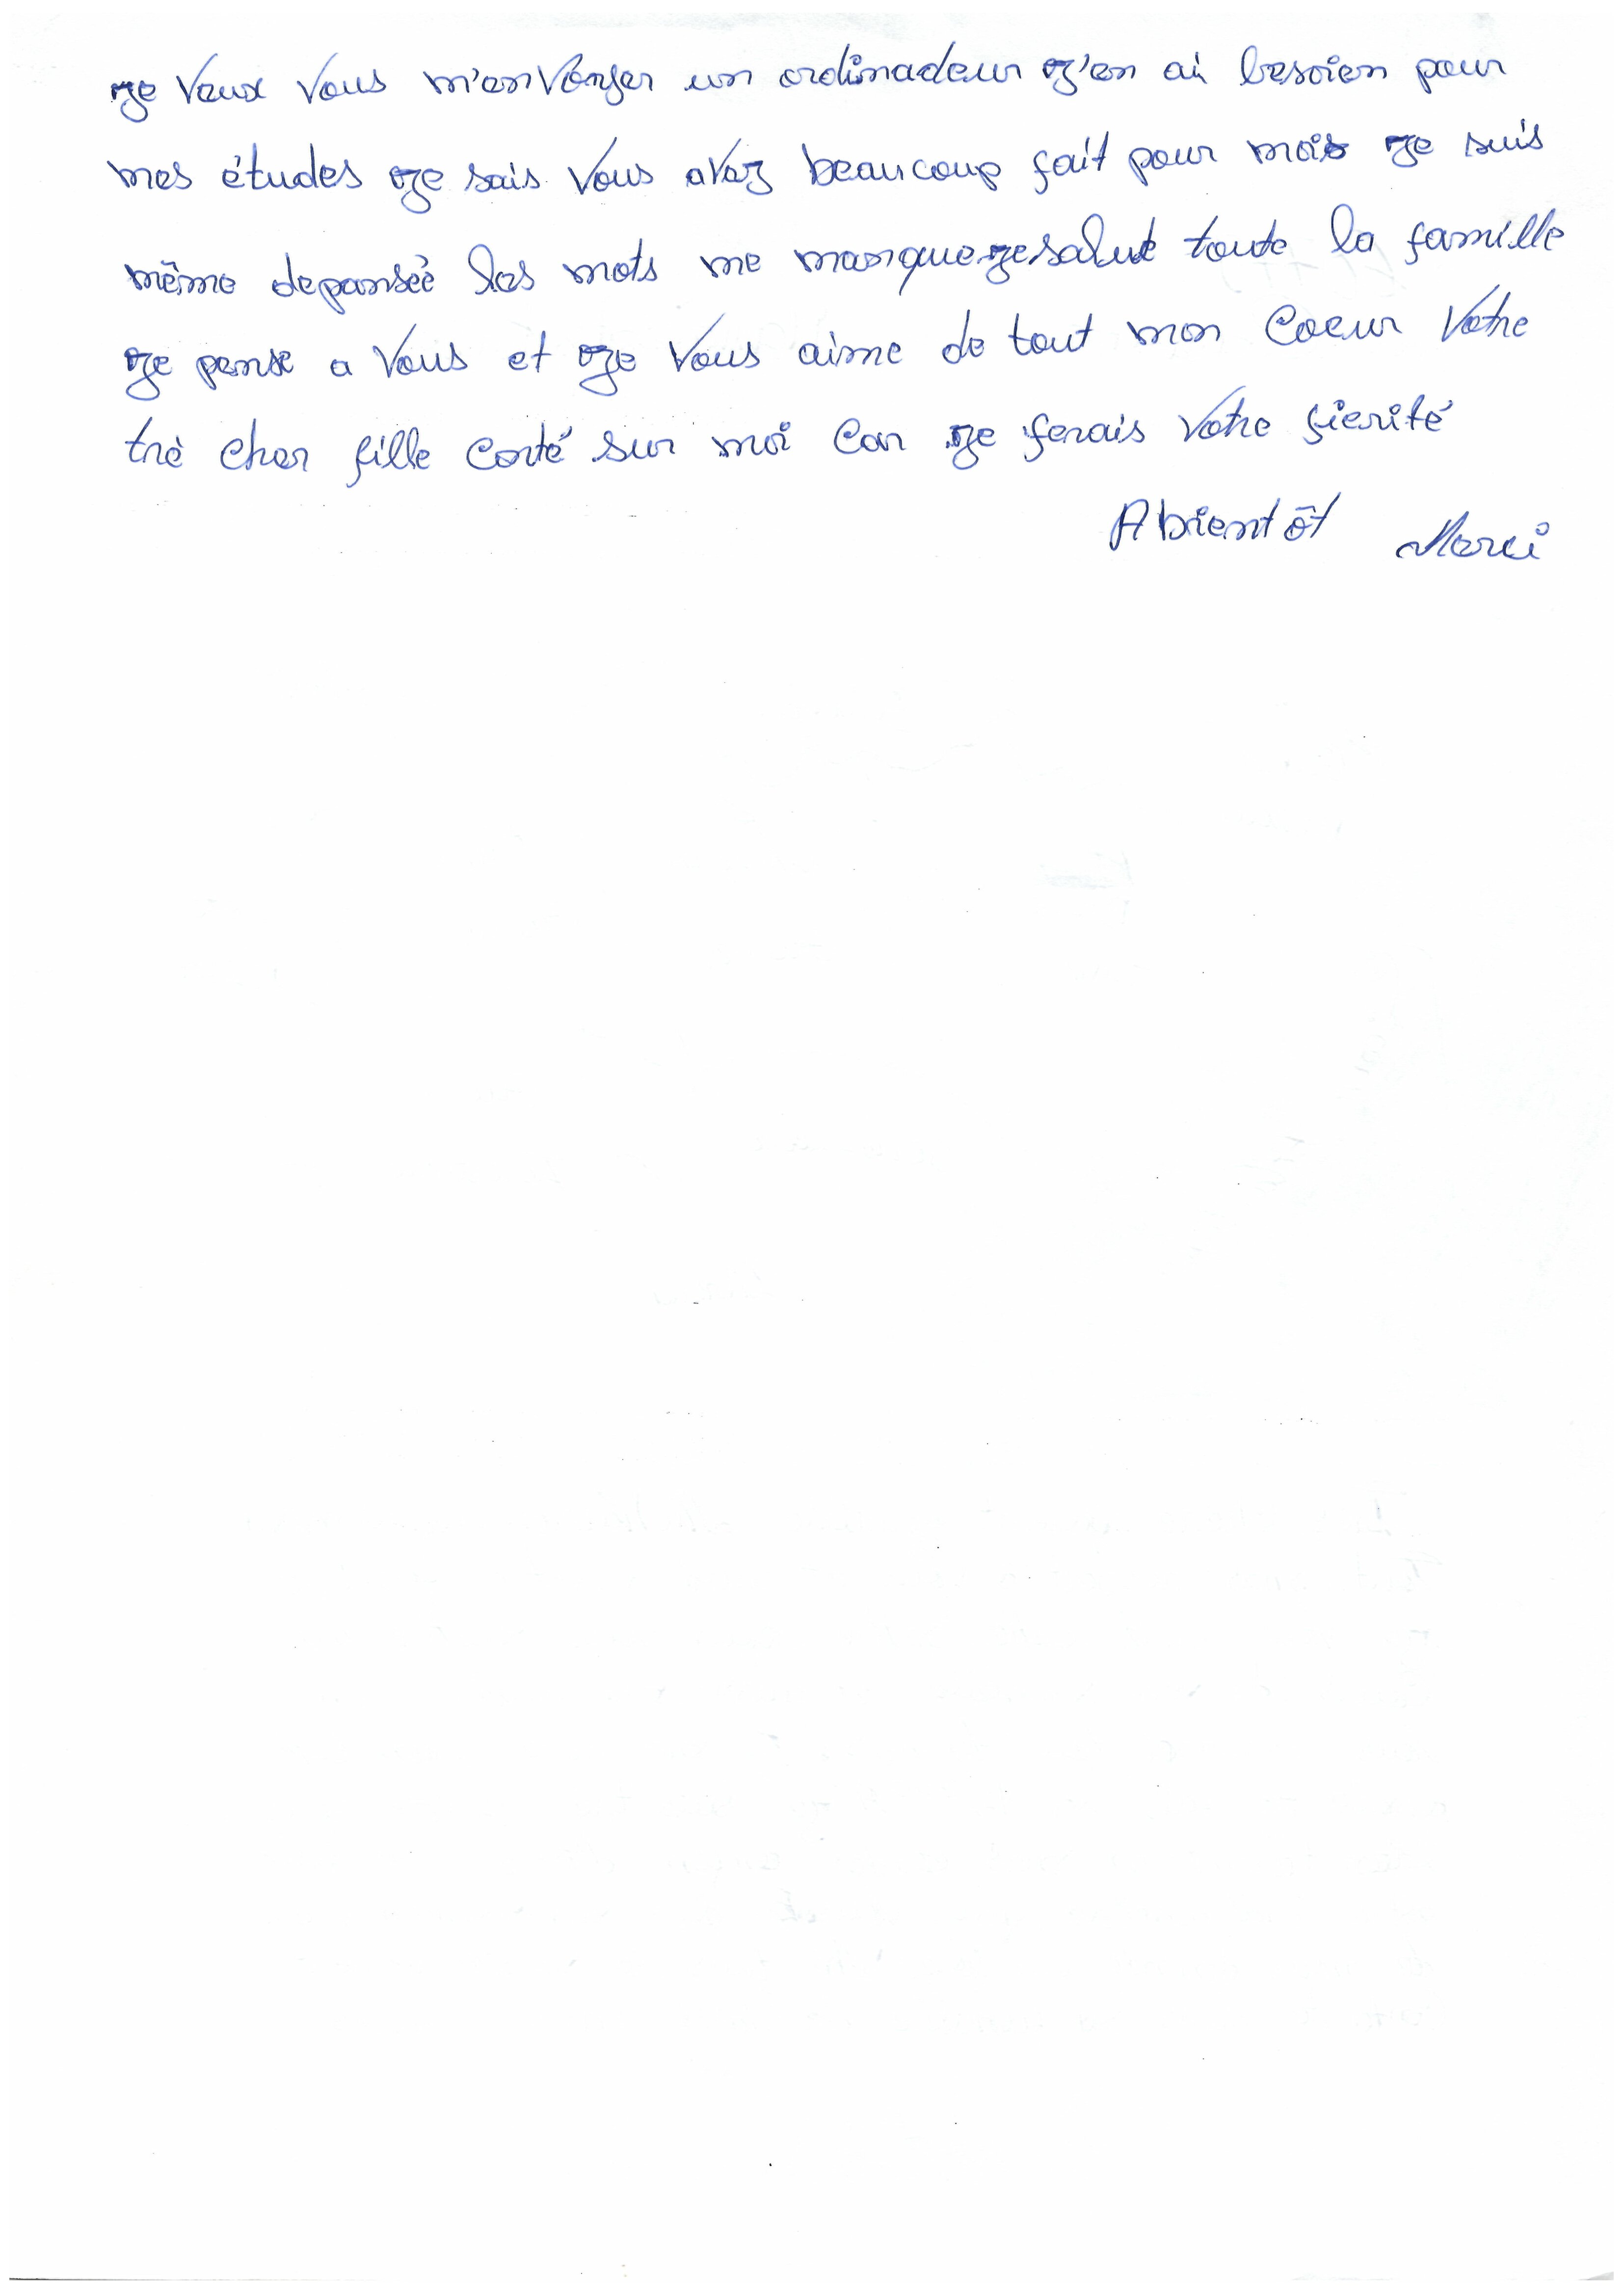 je veux vous m'envoyer un ordinadeur j'en ai besoien pour
mes études je sais vous avez beaucoup fait pour mois je suis
même depanséé les mots me manque je salut toute la famille
je pense a vous et je vous aime de tout mon Coeur votre
trè cher fille conté sur moi Car je ferais votre fierité
A bientôt Merci